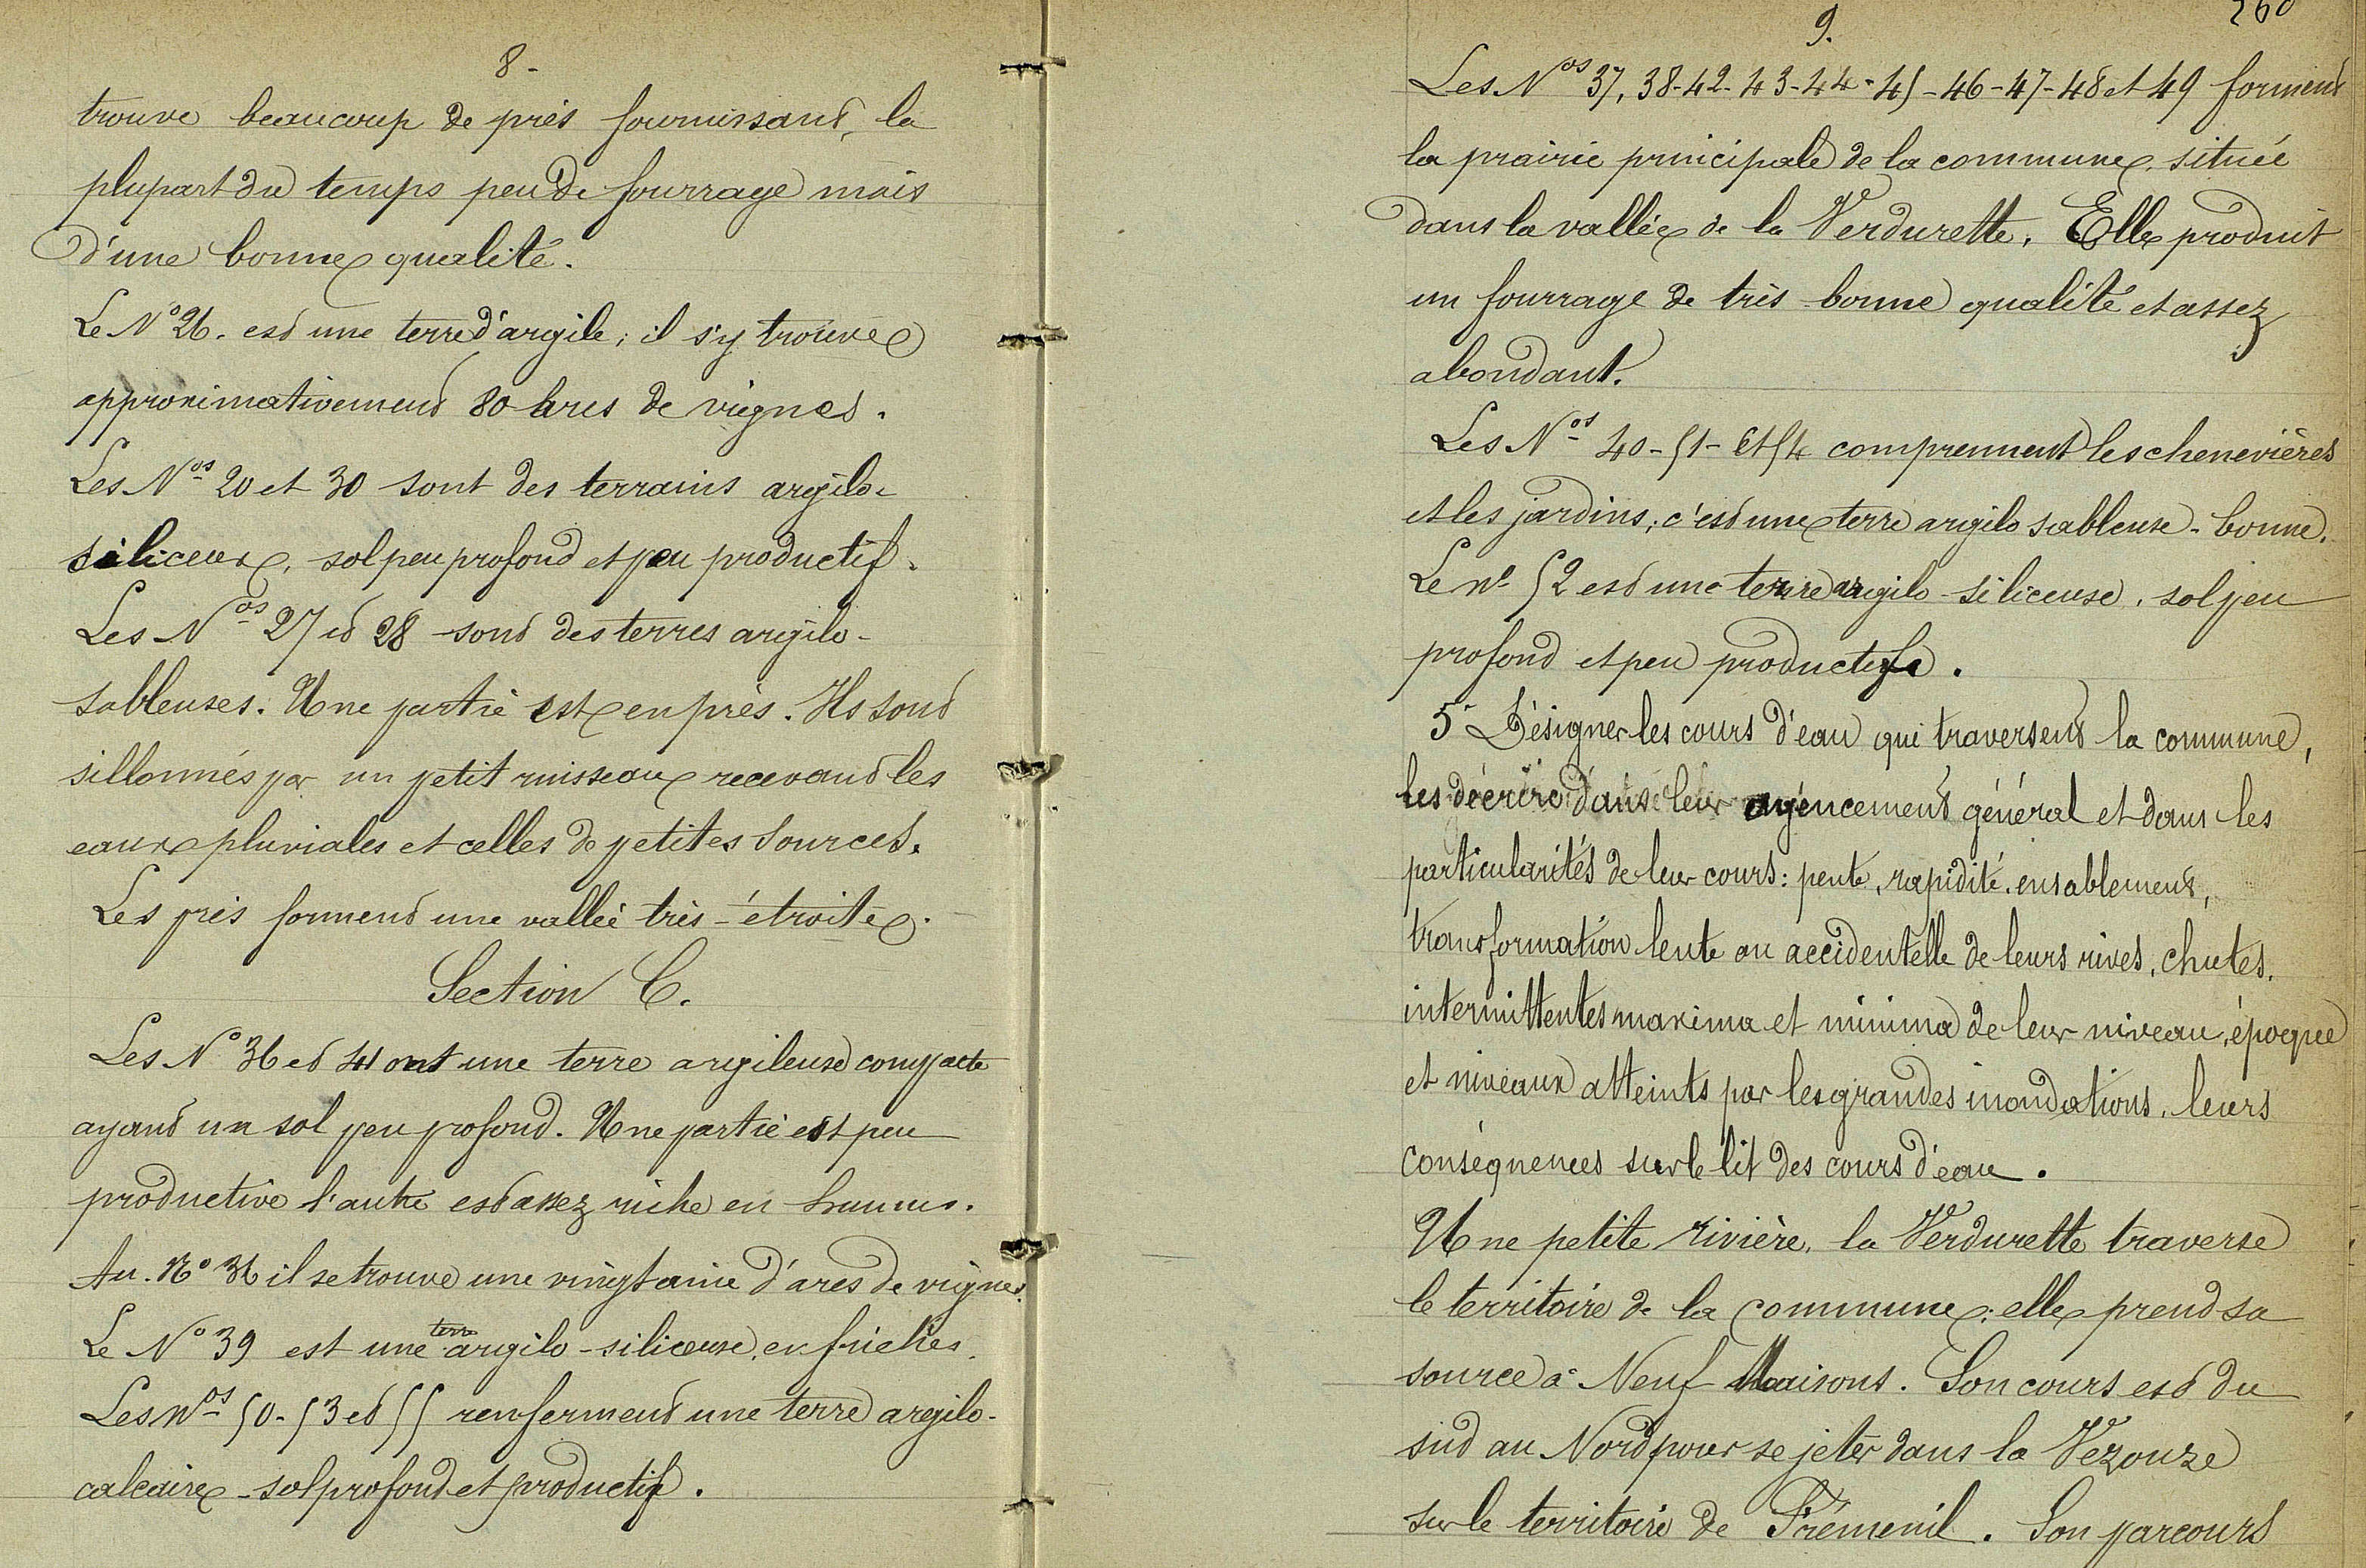 8-
trouve beaucoup de près fournissant, la
plupart du temps peu de fourrage mais
d'une bonne qualité.
Le N° 26. est une terre d'argile; il s'y trouve
approximativement 80 hres de vignes.
Les Nos 20 et 30 sont des terrains argilo-
siliceux, sol peu profond et peu productif.
Les Nos 27 et 28 sont des terres argilo-
sableuses. Une partie est en près. Ils sont
sillonnés par un petit ruisseau recevant les
eaux pluviales et celles de petites sources.
Les près forment une vallée très-étroite.
Section C.
Les N° 36 et 41 ont une terre argileuse compacte
ayant un sol peu profond. Une partie est peu
productive l'autre est assez riche en humus.
Au. N° 36 il se trouve une vingtaine d'ares de vignes.
Le N° 39 est une terre argilo-siliceuse, en friches.
Les nos 50-53 et 55 renferment une terre argilo-
calcaire - sol profond et productif.
9.
260
Les Nos 37, 38-42-43-44-45-46-47-48 et 49 forment
la prairie principale de la commune, située
dans la vallée de la Verdurette. Elle produit
un fourrage de très bonne qualité et assez
abondant.
Les Nos 40-51- et 54 comprennent les chenevières
et les jardins; c'est une terre argilo sableuse - bonne.
Le n° 52 est une terre argilo-siliceuse, sol peu
profond et peu productif.
5° Désigner les cours d'eau qui traversent la commune,
les décrire dans leur agencement général et dans les
particularités de leur cours: pente, rapidité, ensablement,
transformation lente ou accidentelle de leurs rives, chutes.
intermittentes maxima et minima de leur niveau, époque
et niveaux atteints par les grandes inondations, leurs
conséquences sur le lit des cours d'eau.
Une petite rivière, la Verdurette traverse
le territoire de la commune; elle prend sa
source à Neuf Maisons. Son cours est du
sud au Nord pour se jeter dans la Vezouze
sur le territoire de Fréménil. Son parcours